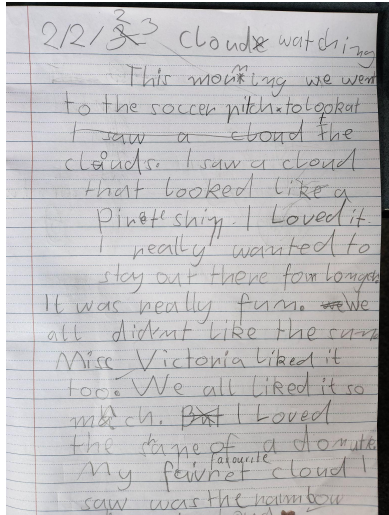 2/2/23 Cloud watching
This morning we went
to the soccer pitch to look at
I saw a cloud the
clouds. I saw a cloud
that looked like a
Pirate ship. I Loved it.
I really wanted to
stay out there for longer
It was really fun. We
all didnt like the sun
Miss Victoria liked it
too. We all liked it so
much. But I Loved
the shape of a donut.
My favourite cloud I
saw was the rainbow